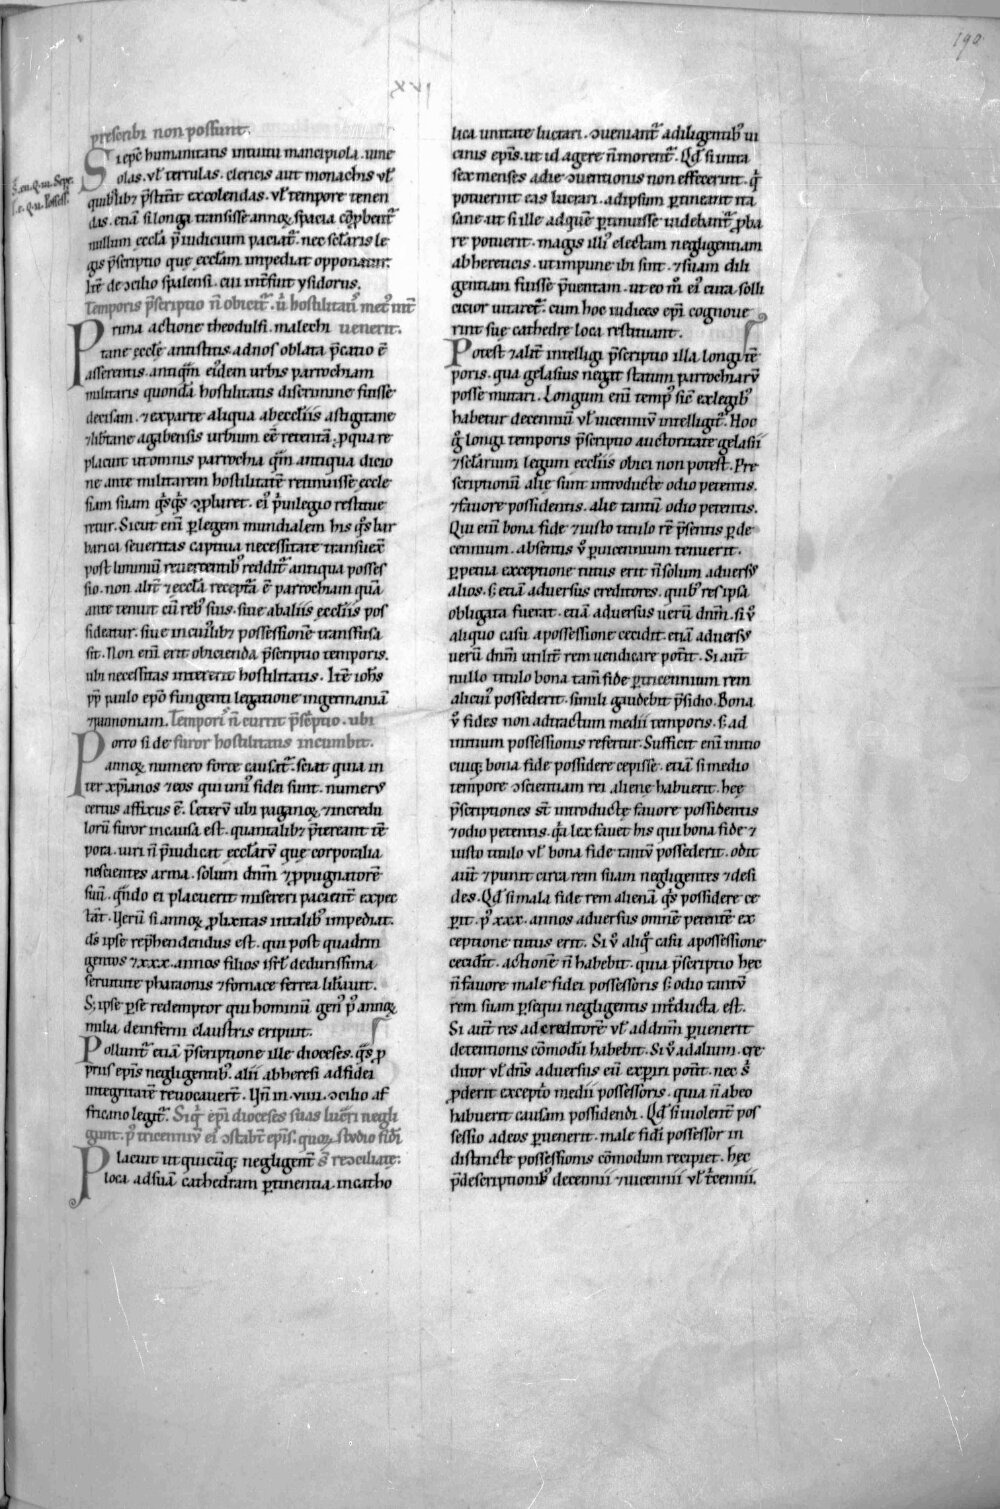 190
xvi
prescribi non possunt.
Si epc̄ humanitatis intuitu mancipiola. uine
olas. ul̄ terrulas. clericis aut monachis ul̄
quib;libꝫ p̄stiterit excolendas. ul̄ tempore tenen
das. etiā si longa transisse annoꝝ spacia cōprobent᷑
nullum ęccl̄a p̄iudicium paciat᷑. nec sc̄laris le
gis p̄scriptio quę ęccl̄am impediat opponatur.
Itē de ɔcilio spalensi. cui int̄fuit ysidorus.
Temporis p̄scriptio n̄ obicit᷑. u̇ hostilitatis
Prima actione theodulfi. malechi uenerit.
tane ęccl̄ę antistitis. ad nos oblata p̄catio ē
asserentis. antiq̄m eiꝰdem urbis parrochiam
militaris quondā hostilitatis discrimine fuisse
decisam. ⁊ ex parte aliqua ab eccl̄iis astigitane
⁊ lib̄tane agabensis urbium eē retentā. ꝓ qua re
placuit ut omnis parrochia q̄m antiqua dicio
ne ante militarem hostilitatē retinuisse ęccl̄e
siam suam ꝯpbaret. eiꝰ p̄uilegio restitue
retur. Sicut eni ꝑ legem mundialem his q̇s bar
barica seueritas captiua necessitate transuexit
post liminiū reuertentibꝰ reddit᷑ antiqua posses
sio. non alit̄ ⁊ ęccl̄a receptā ē parrochiam quā
ante tenuit cū rebꝰ suis. siue ab aliis ęccl̄iis pos
sideatur. siue in cuiꝰlibꝫ possessionē transfusa
sit. Non eni erit obicienda p̄scriptio temporis.
ubi necessitas intererit hostilitatis. Itē ioh̄s
pp̄ paulo epō fungenti legatione in germaniā
⁊ pannoniam. Tempori n̄ currit p̄scriptio. ubi
Porro si de furor hostilitatis incumbit.
annoꝝ numero forte causat᷑. sciat quia in
ter xp̄ianos ⁊ eos qui uniꝰ fidei sunt. numerꝰ
certus affixus ē. Ceterū ubi paganoꝝ ⁊ incredu
lorū furor in causa est. quantalibꝫ p̄tereant tē
pora. iuri n̄ p̄iudicat ęccl̄arū quę corporalia
nescientes arma. solum dn̄m ⁊ ꝓpugnatorē
suū. q̄ndo ei placuerit misereri pacient̄ expec
tāt. Uerū si annoꝝ ꝓlixitas in talibꝰ impediat.
ds̄ ipse rep̄hendendus est. qui post quadrin
gentos ⁊ xxx. annos filios isrl̄ de durissima
seruitute pharaonis ⁊ fornace ferrea lib̄auit.
S; ipse ꝑ se redemptor qui hominū genꝰ pꝰ annoꝝ
milia de inferni claustris eripuit.
Pollunt᷑ etiā p̄scriptione ille dioceses. q̇s ꝓ
priis epīs negligentibꝰ. alii ab heresi ad fidei
integritatē reuocauerit. Un̄ in. viiii. ɔcilio af
fricano legit᷑. Siq̇ epī dioceses suas lucri negli
gunt. pꝰ tricenniū ei ɔstabt̄ epīs. quoꝝ studio fidi
Placuit ut quicūq; negligent̄ s̄ recɔciliate.
loca ad suā cathedram ꝑtinentia in catho
lica unitate lucrari. ɔueniant᷑ a diligentibꝰ ui
cinis epīs. ut id agere n̄ morent᷑. Qd̄ si intra
sex menses a die ɔuentionis non effecerint. q̇
potuerint eas lucrari. ad ipsum ꝑtineant ita
sane ut si ille ad quē ꝑtinuisse uidebant᷑ ꝓba
re potuerit. magis illiꝰ electam negligentiam
ab hereticis. ut impune ibi sint. ⁊ suam dili
gentiam fuisse p̄uentam. ut eo m̊ eiꝰ cura solli
citior uitaret᷑. cum hoc iudices epī cognoue
rint suę cathedrę loca restituant.
Potest ⁊ alit̄ intelligi p̄scriptio illa longi tē
poris. qua gelasius negat statum parrochiarū
posse mutari. Longum eni tempꝰ sic̄ ex legibꝰ
habetur decenniū ul̄ uicenniū intelligit᷑. Hoc
g̊ longi temporis p̄scriptio auctoritate gelasii
⁊ sc̄larium legum ęccl̄iis obici non potest. Pre
scriptionū alię sunt introductę odio petentis.
⁊ fauore possidentis. alię tantū odio petentis.
Qui eni bona fide ⁊ iusto titulo rē p̄sentis ꝑ de
cennium. absentis u̇ ꝑ uicennium tenuerit.
ꝑpetua exceptione tutus erit n̄ solum aduersꝰ
alios. s; etiā aduersus creditores. quibꝰ res ipsa
obligata fuerat. etiā aduersus uerū dn̄m. si u̇
aliquo casu a possessione cecidit. etiā aduersꝰ
uerū dn̄m utilit̄ rem uendicare potit. Si aut̄
nullo titulo bona tam̄ fide ꝑ tricennium rem
alicuiꝰ possederit. simili gaudebit p̄sidio. Bona
u̇ fides non ad tractum medii temporis. s; ad
initium possessionis refertur. Sufficit eni initio
cuiq; bona fide possidere cepisse. etiā si medio
tempore ɔscientiam rei alienę habuerit. hęc
p̄scriptiones st̄ introductę fauore possidentis
⁊ odio petentis. q̇a lex fauet his qui bona fide ⁊
iusto titulo ul̄ bona fide tantū possederit. odit
aut̄ ⁊ punit circa rem suam negligentes ⁊ desi
des. Qd̄ si mala fide rem alienā q̇s possidere ce
ꝑit. pꝰ xxx. annos aduersus omnē petentē ex
ceptione tutus erit. Si u̇ aliq̊ casu a possessione
cecidit. actionē n̄ habebit. quia p̄scriptio hęc
n̄ fauore male fidei possessoris s; odio tantū
rem suam ꝑsequi negligentis int̊ducta est.
Si aut̄ res ad creditorē ul̄ ad dn̄m ꝑuenerit
detentionis cōmodū habebit. Si u̇ ad alium. cre
ditor ul̄ dn̄s aduersus eū exꝑiri potit. nec s̄
ꝓderit exceptio medii possessoris. quia n̄ ab eo
habuerit causam possidendi. Qd̄ si uiolent̄ pos
sessio ad eos ꝑuenerit. male fidei possessor in
distincte possessionis cōmodum recipiet. hęc
p̄descriptionibꝰ decennii ⁊ uicennii ul̄ tricennii.